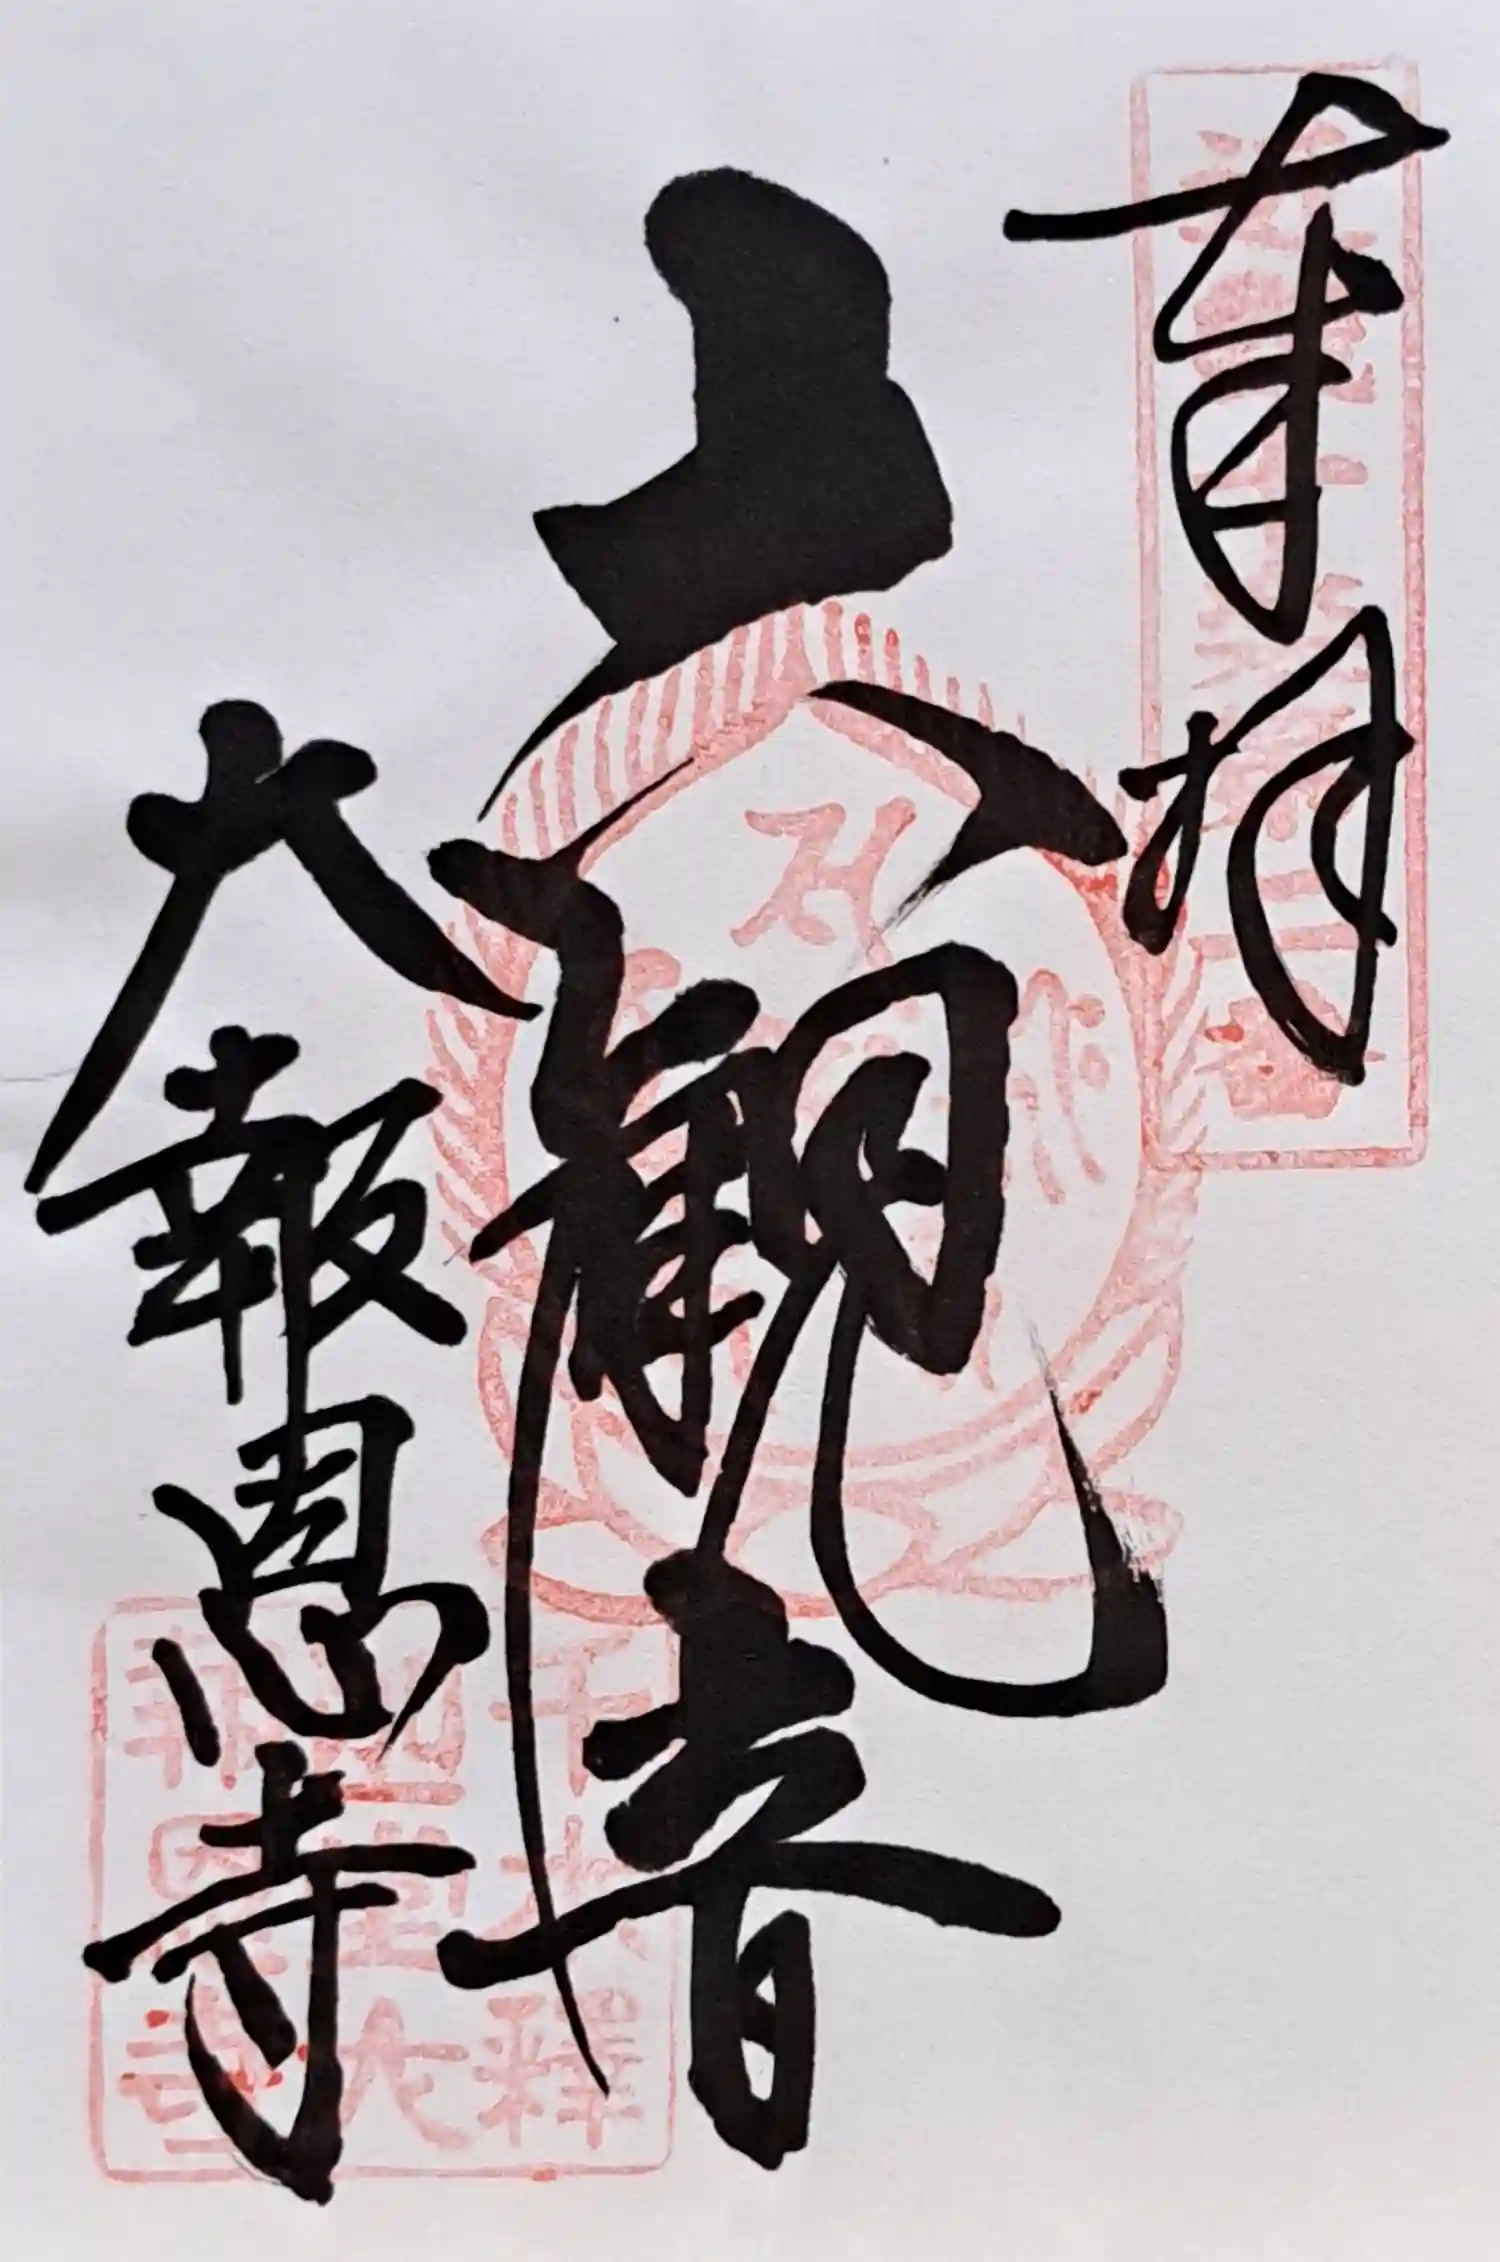 奉拝
六観音
大報恩寺
千本釋
迦堂大
報恩寺